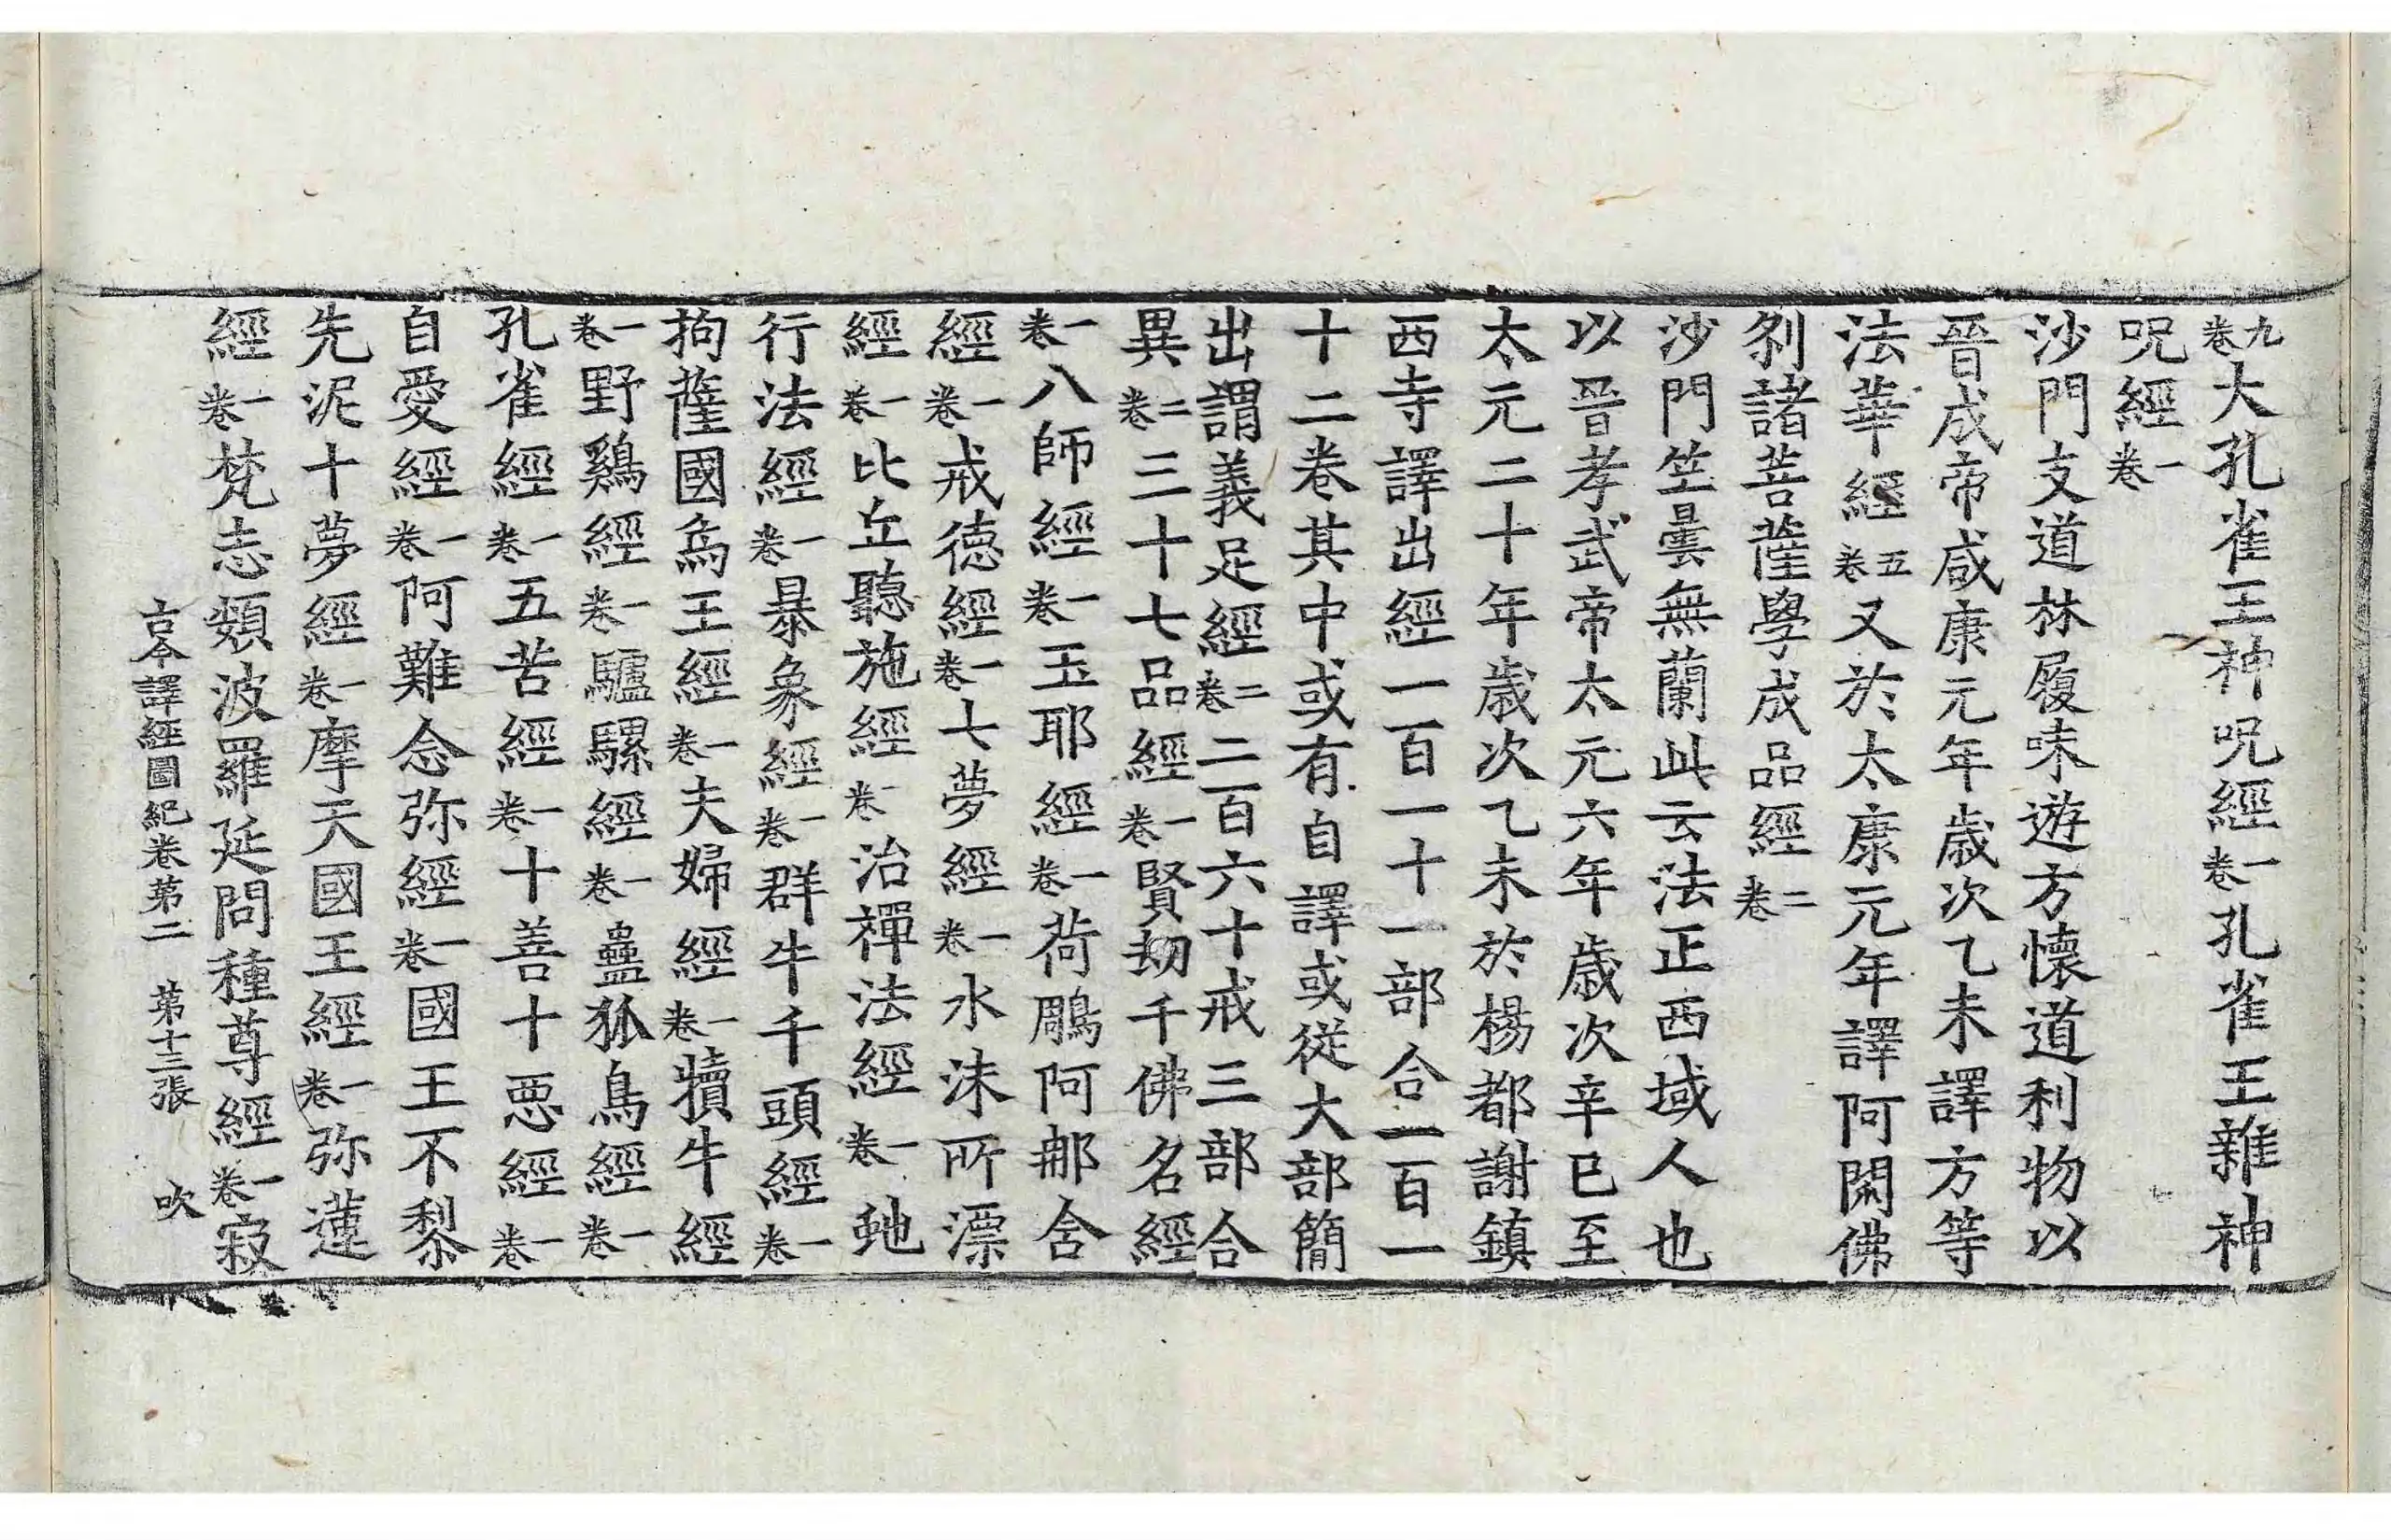 九卷大孔雀王神呪經一卷孔雀王雜神
呪經一卷
沙門支道林履味遊方懷道利物以
晉成帝咸康元年歲次乙未譯方等
法華經五卷又於太康元年譯阿閦佛
刹諸菩薩學成品經二卷
沙門竺曇無蘭此云法正西域人也
以晉孝武帝太元六年歲次辛巳至
太元二十年歲次乙未於楊都謝鎮
西寺譯出經一百一十一部合一百一
十二卷其中或有自譯或從大部簡
出謂義足經二卷二百六十戒三部合
異二卷三十七品經一卷賢劫千佛名經
一卷八師經一卷玉耶經一卷荷鵰阿那舍
經一卷戒德經一卷七夢經一卷水沫所漂
經一卷比丘聽施經一卷治禪法經一卷虵
行法經一卷暴象經一卷群牛千頭經一卷
拘薩國烏王經一卷夫婦經一卷犢牛經
一卷野鷄經一卷驢騾經一卷蠱狐鳥經一卷
孔雀經一卷五苦經一卷十善十惡經一卷
自愛經一卷阿難念弥經一卷國王不黎
先泥十夢經一卷摩天國王經一卷弥蓮
經一卷梵志頞波羅延問種尊經一卷寂
古今譯經圖紀卷第二 第十三張 吹